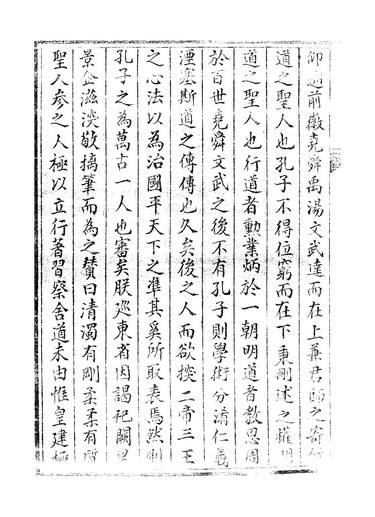 仰
前徽堯舜禹湯文武達而在上兼君師之寄行
道之聖人也孔子不得位窮而在下秉刪述之權明
道之聖人也行道者勲業炳於一朝明道者教思周
於百世堯舜文武之後不有孔子則學術分淆仁義
湮塞斯道之傳傳也久矣後之人而欲探二帝三王
之心法以為治國平天下之準其奚所取衷焉然則
孔子之為萬古一人也審矣朕廵東省因謁祀闕里
景企滋深敬摛筆而為之贊曰清濁有剛柔柔有質
聖人参之人極以立行著習察舍道禾由惟皇建極